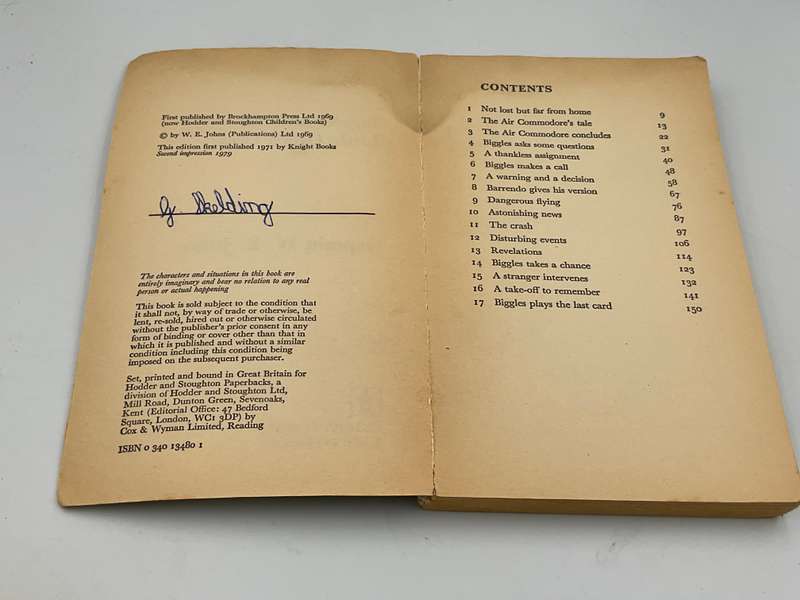 First published by Brockhampton Press Ltd 1969
(now Hodder and Stoughton Children's Books)
© by W. E. Johns (Publications) Ltd 1969
This edition first published 1971 by Knight Books
Second impression 1979
G Skelding
The characters and situations in this book are
entirely imaginary and bear no relation to any real
person or actual happening
This book is sold subject to the condition that
it shall not, by way of trade or otherwise, be
lent, re-sold, hired out or otherwise circulated
without the publisher's prior consent in any
form of binding or cover other than that in
which it is published and without a similar
condition including this condition being
imposed on the subsequent purchaser.
Set, printed and bound in Great Britain for
Hodder and Stoughton Paperbacks, a
division of Hodder and Stoughton Ltd,
Mill Road, Dunton Green, Sevenoaks,
Kent (Editorial Office: 47 Bedford
Square, London, WC1 3DP) by
Cox & Wyman Limited, Reading
ISBN 0 340 13480 1
CONTENTS
1 Not lost but far from home 9
2 The Air Commodore's tale 13
3 The Air Commodore concludes 22
4 Biggles asks some questions 31
5 A thankless assignment 40
6 Biggles makes a call 48
7 A warning and a decision 58
8 Barrendo gives his version 67
9 Dangerous flying 76
10 Astonishing news 87
11 The crash 97
12 Disturbing events 106
13 Revelations 114
14 Biggles takes a chance 123
15 A stranger intervenes 132
16 A take-off to remember 141
17 Biggles plays the last card 150